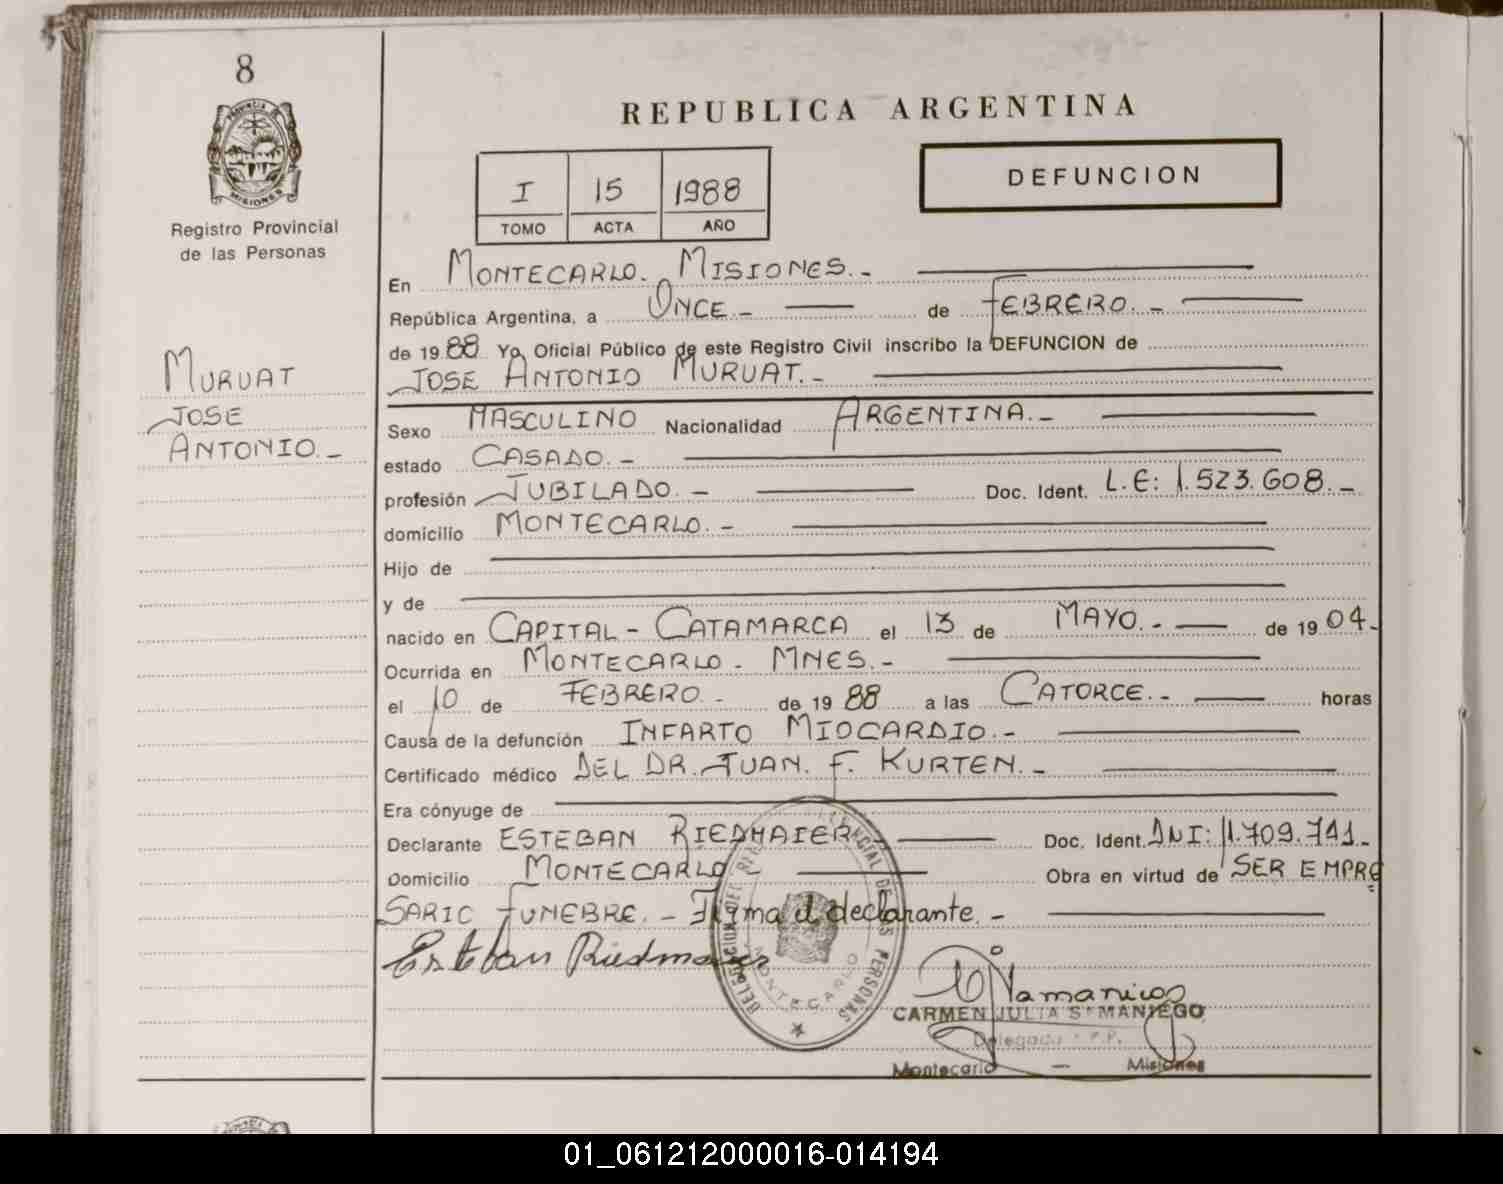 8
PROVINCIA DE
MISIONES
Registro Provincial
de las Personas
MURUAT
JOSE
ANTONIO.-
REPUBLICA ARGENTINA
I 15 1988
TOMO ACTA AÑO
DEFUNCION
En MONTECARLO. MISIONES.-
República Argentina, a ONCE.- de FEBRERO.-
de 1988 Yo, Oficial Público de este Registro Civil inscribo la DEFUNCION de
JOSE ANTONIO MURUAT.-
Sexo MASCULINO Nacionalidad ARGENTINA.-
estado CASADO.-
profesión JUBILADO.- Doc. Ident. L.E: 1.523.608.-
domicilio MONTECARLO.-
Hijo de
y de
nacido en CAPITAL - CATAMARCA el 13 de MAYO.- de 1904.-
Ocurrida en MONTECARLO. MNES.-
el 10 de FEBRERO.- de 1988 a las CATORCE.- horas
Causa de la defunción INFARTO MIOCARDIO.-
Certificado médico DEL DR. JUAN. F. KURTEN.-
Era cónyuge de
Declarante ESTEBAN RIEDMAIER.- Doc. Ident. DNI: 11.709.741.-
Domicilio MONTECARLO.- Obra en virtud de SER EMPRE
SARIO FUNEBRE.- Firma el declarante.-
Esteban Riedmaier
MONTECARLO
CARMEN JULIA SAMANIEGO
Montecarlo — Misiones
01_061212000016-014194